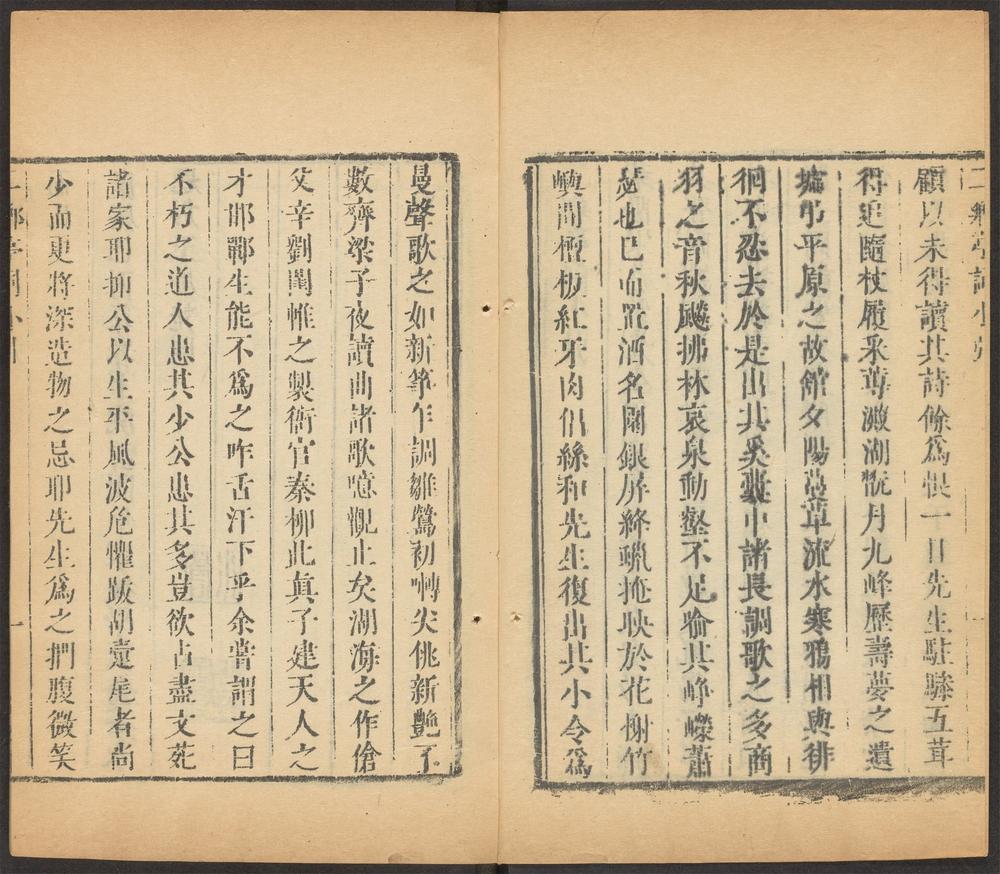 二鄉亭詞小引
顧以未得讀其詩餘為恨一日先生駐驂五茸
得追隨杖履采蓴澱湖翫月九峰歷壽夢之遺
墟弔平原之故館夕陽蔓草流水寒鴉相與徘
徊不忍去於是出其奚囊中諸長調歌之多商
羽之音秋飈拂林哀泉動壑不足喻其崢嶸蕭
瑟也已而置酒名園銀屏絳蠟掩映於花榭竹
嶼間檀板紅牙肉倡絲和先生復出其小令為
曼聲歌之如新箏乍調雛鶯初囀尖佻新艷了
數齊梁子夜讀曲諸歌噫觀止矣湖海之作傖
父辛劉閨帷之製衙官秦柳此真子建天人之
才邯鄲生能不為之咋舌汗下乎余嘗謂之曰
不朽之道人患其少公患其多豈欲占盡文苑
諸家耶抑公以生平風波危懼跋胡疐尾者尚
少而更將深造物之忌耶先生為之捫腹微笑
二鄉亭詞小引
一